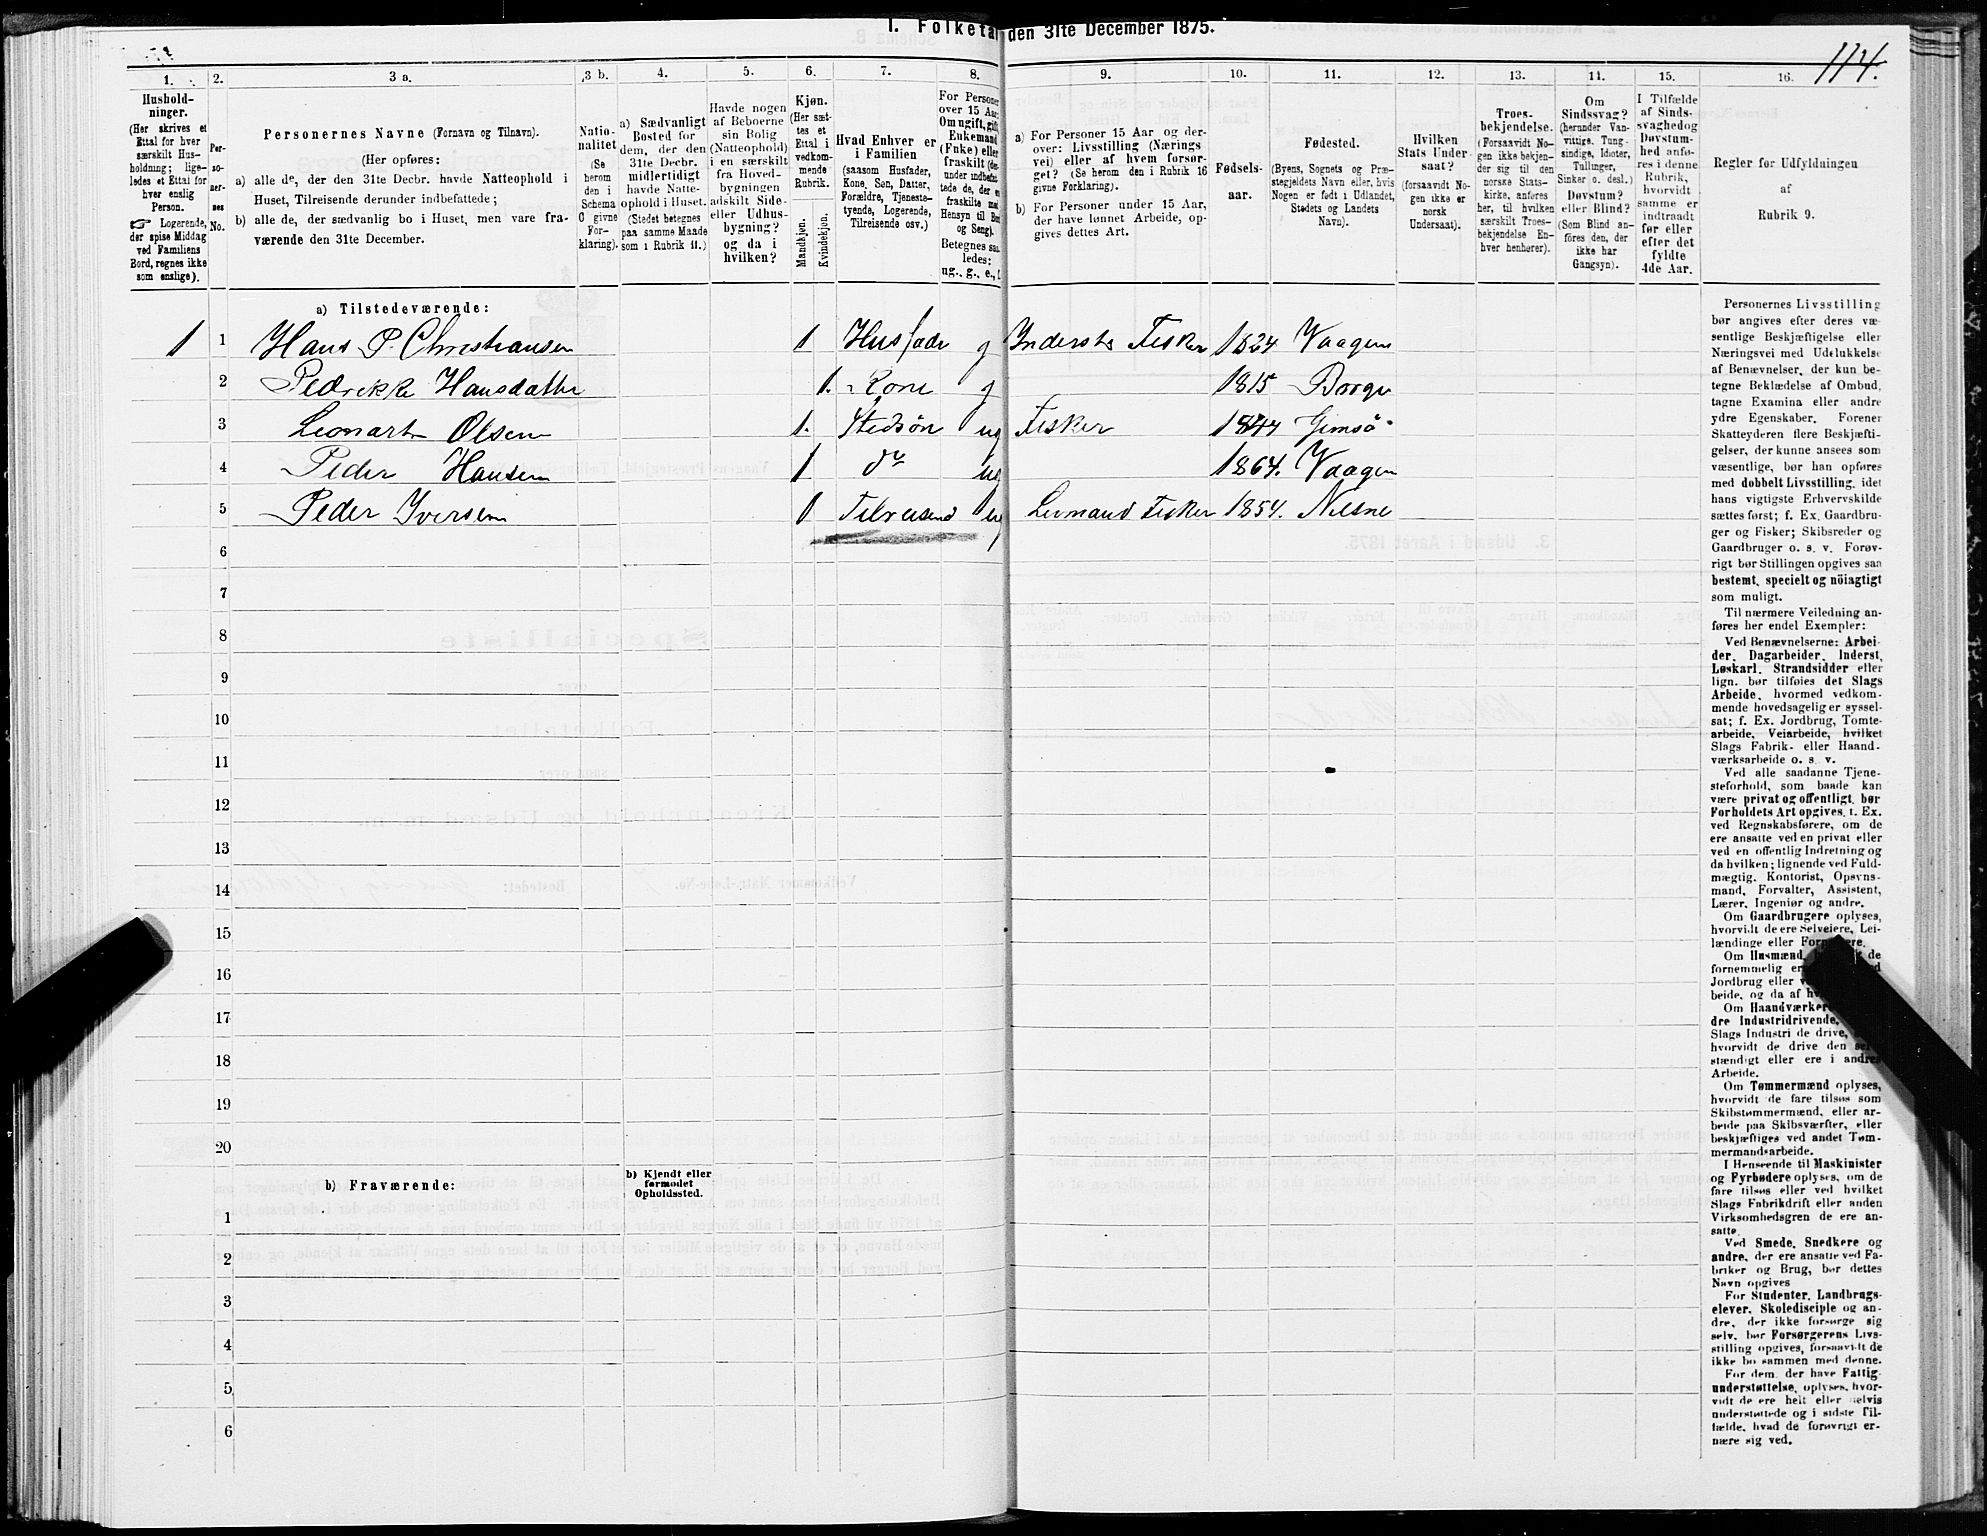 1. Folketal den 31te December 1875.
114.
1.
2.
3 a.
3 b.
4.
5.
6.
7.
8.
9.
10.
11.
12.
13.
14.
15.
16.
Hushold-
ninger.
(Her skrives et
Ettal for hver
særskilt Hus-
holdning; lige-
ledes et Ettal for
hver enslig
Person.
☞ Logerende,
der spise Middag
ved Familiens
Bord, regnes ikke
som enslige).
Per-
so-
ner-
nes
No.
Personernes Navne (Fornavn og Tilnavn).
(Her opføres:
a) alle de, der den 31te Decbr. havde Natteophold i
Huset, Tilreisende derunder indbefattede;
b) alle de, der sædvanlig bo i Huset, men vare fra-
værende den 31te December.
Natio-
nalitet
(Se
herom
den i
Schema
O givne
For-
klaring).
a) Sædvanligt
Bosted for
dem, der den
31te Decbr.
midlertidigt
havde Natte-
ophold i Huset.
(Stedet betegnes
paa samme Maade
som i Rubrik 11.)
Havde nogen
af Beboerne
sin Bolig
(Natteophold)
i en særskilt
fra Hoved-
bygningen
adskilt Side-
eller Udhus-
bygning?
og da i
hvilken?
Kjøn.
(Her sæt-
tes et
Ettal i
vedkom-
mende
Rubrik.
Mandkjøn.
Kvindekjøn.
Hvad Enhver er
i Familien
(saasom Husfader,
Kone, Søn, Datter,
Forældre, Tjeneste-
tyende, Logerende,
Tilreisende osv.)
For Personer
over 15 Aar
Om ugift, gift,
Enkemand
(Fnke) eller
fraskilt (de-
under indbefat-
tede de, der er
fraskilte med
Hensyn til Bord
og Seng).
Betegnes saa-
ledes:
ug., g., e., f.
a) For Personer 15 Aar og der-
over: Livsstilling (Nærings
vei) eller af hvem forsør-
get? (Se herom den i Rubrik 16
givne Forklaring).
b) For Personer under 15 Aar,
der have lønnet Arbeide, op-
gives dettes Art.
Fødsels-
aar.
Fødested.
(Byens, Sognets og Præ-
stegjeldets Navn eller, hvis
Nogen er født i Udlandet,
Stedets og Landets
Navn).
Hvilken
Stats Under
saat?
(forsaavidt No-
gen ikke er
norsk
Undersaat).
Troes-
bekjendelse.
(Forsaavidt No-
gen ikke bekjen-
der sig til den
norske Stats-
kirke, anføres
her, til hvilken
særskilt Troes-
bekjendelse En-
hver henhører).
Om
Sindssvag?
(herunder Van-
vittige, Tung-
sindige, Idioter,
Tullinger,
Sinker o. desl.)
Døvstum?
eller Blind?
(Som Blind an-
føres den, der
ikke har
Gangsyn).
I Tilfælde
af Sinds-
svaghedog
Døvstum-
hed anfø-
res i denne
Rubrik,
hvorvidt
samme er
indtraadt
før eller
efter det
fyldte
4de Aar.
Regler for Udfyldningen
af
Rubrik 9.
a) Tilstedeværende:
1 1 Hans P. Christiansen 1 Husfader g Inderste Fisker 1824 Vaagen
2 Pedrikke Hansdatter 1. Kone g 1815 Borge
3 Leonart Olsen 1. Stedsøn ug Fisker 1844 Gimsö
4 Peder Hansen 1 do ug 1864. Vaagen
5 Peder Iversen 1 Tilreisend ug Leimand Fisker 1854. Nesne
6
7
8
9
10
11
12
13
14
15
16
17
18
19
20
b) Fraværende:
b) Kjendt eller
formodet
Opholdssted.
1
2
3
4
5
6
Personernes Livsstilling
bør angives efter deres væ-
sentlige Beskjæftigelse eller
Næringsvei med Udelukkelse
af Benævnelser, der kun be-
tegne Beklædelse af Ombud,
tagne Examina eller andre
ydre Egenskaber. Forener
Skatteyderen flere Beskjæfti-
gelser, der kunne ansees som
væsentlige, bør han opføres
med dobbelt Livsstilling, idet
hans vigtigste Erhvervskilde
sættes først; f. Ex. Gaardbru-
ger og Fisker; Skibsreder og
Gaardbruger o. s. v. Forøv-
rigt bør Stillingen opgives saa
bestemt, specielt og nöiagtigt
som muligt.
Til nærmere Veiledning an-
føres her endel Exempler:
Ved Benævnelserne: Arbei-
der, Dagarbeider, Inderst,
Løskarl, Strandsidder eller
lign. bør tilføies det Slags
Arbeide, hvormed vedkom-
mende hovedsagelig er syssel-
sat; f. Ex. Jordbrug, Tomte-
arbeide, Veiarbeide, hvilket
Slags Fabrik- eller Haand-
værksarbeide o. s. v.
Ved alle saadanne Tjene-
steforhold, som baade kan
være privat og offentligt, bør
Forholdets Art opgives, t. Ex.
ved Regnskabsførere, om de
ere ansatte ved en privat eller
ved en offentlig Indretning og
da hvilken; lignende ved Fuld-
mægtig, Kontorist, Opsyns-
mand, Forvalter, Assistent,
Lærer, Ingeniør og andre.
Om Gaardbrugere oplyses,
hvorvidt de ere Selveiere, Lei-
lændinge eller
Om Husmænd, de
fornemmelig er
Jordbrug eller
beide, og da af
Om Haandværkere
dre Industridrivende,
Slags Industri de drive,
hvorvidt de drive den sel-
stændigt eller ere i andres
Arbeide.
Om Tømmermænd oplyses,
hvorvidt de fare tilsøs som
Skibstømmermænd, eller ar-
beide paa Skibsværfter, eller
beskjæftiges ved andet Tøm-
mermandsarbeide.
I Henseende til Maskinister
og Fyrbødere oplyses, om de
fare tilsøs eller ved hvilket
Slags Fabrikdrift eller anden
Virksomhedsgren de ere an-
satte.
Ved Smede, Snedkere og
andre, der ere ansatte ved Fa-
briker og Brug, bør dettes
Navn opgives
For Studenter, Landbrugs-
elever, Skoledisciple og an-
dre, der ikke forsørge sig
selv, bør Forsørgerens Livs-
stilling opgives, forsaavidt de
ikke bo sammen med denne.
For dem, der have Fattig-
understøttelse, oplyses, hvor-
vidt de ere helt eller delvis
understøttede og i sidste Til-
fælde, hvad de forøvrigt er-
nære sig ved.